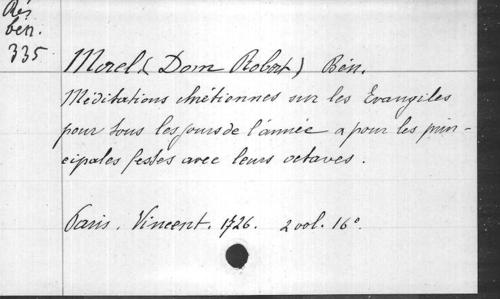 Rés
bén.
335
Morel (Dom Robert) Bén.
Méditations chrétiennes sur les Evangiles
pour tous les jours de l'année a pour les prin-
cipales festes avec leurs octaves.
Paris. Vincent. 1726. 2 vol. 16°.